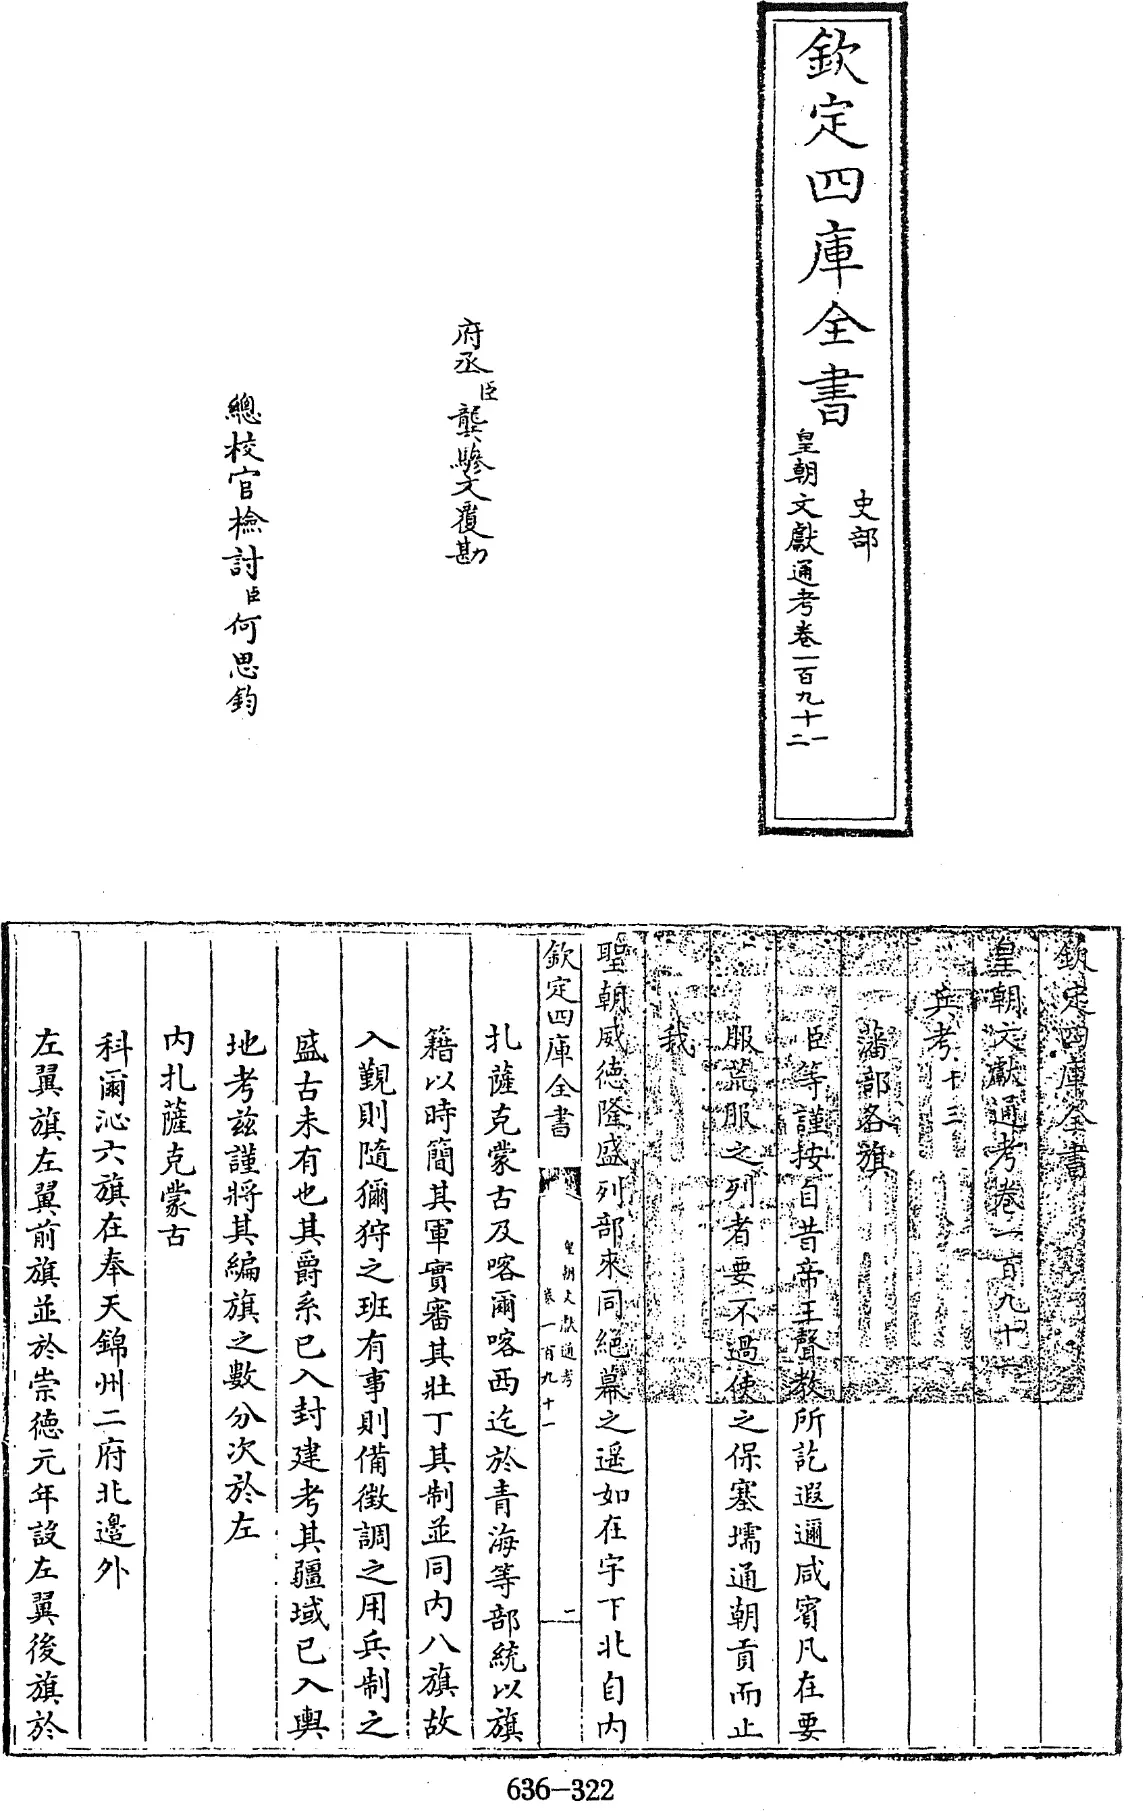 欽定四庫全書
史部
皇朝文獻通考卷一百九十一二
府丞臣龔驂文覆勘
總校官檢討臣何思鈞
欽定四庫全書
皇朝文獻通考卷一百九十一
兵考十三
藩部各旗
臣等謹按自昔帝王聲教所訖遐邇咸賓凡在要
服荒服之列者要不過使之保塞壖通朝貢而止
我
聖朝威德隆盛列部來同絕幕之遥如在宇下北自内
欽定四庫全書
皇朝文獻通考
卷一百九十一
二
扎薩克蒙古及喀爾喀西迄於青海等部統以旗
籍以時簡其軍實審其壯丁其制並同内八旗故
入覲則隨獮狩之班有事則備徵調之用兵制之
盛古未有也其爵系已入封建考其疆域已入輿
地考兹謹將其編旗之數分次於左
内扎薩克蒙古
科爾沁六旗在奉天錦州二府北邊外
左翼旗左翼前旗並於崇徳元年設左翼後旗於
636-322